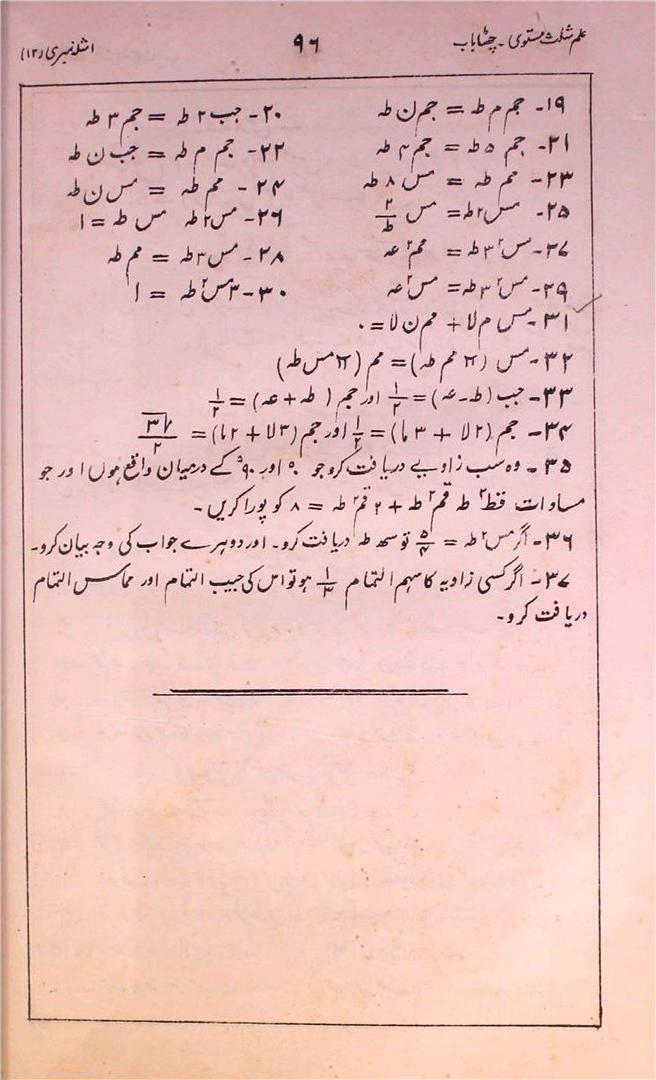 علم مثلث مستوی - چھٹا باب ۹۶ امثلہ نمبری (۱۳)
۱۹- جم م طہ = جم ن طہ ۲۰- جب ۲ طہ = جم ۳ طہ
۲۱- جم ۵ طہ = جم ۴ طہ ۲۲- جم م طہ = جب ن طہ
۲۳- مم طہ = مس ۸ طہ ۲۴- مم طہ = مس ن طہ
۲۵- مس ۲ طہ = مس ۲/طہ ۲۶- مس ۲ طہ مس طہ = ۱
۲۷- مس۲ ۳ طہ = مم۲ عہ ۲۸- مس ۳ طہ = مم طہ
۲۹- مس۲ ۳ طہ = مس۲ عہ ۳۰- ۳ مس۲ طہ = ۱
۳۱- مس م لا + مم ن لا = ۰
۳۲- مس (π مم طہ) = مم (π مس طہ)
۳۳- جب (طہ - عہ) = ۱/۲ اور جم (طہ + عہ) = ۱/۲
۳۴- جم (۲ لا + ۳ ما) = ۱/۲ اور جم (۳ لا + ۲ ما) = √۳/۲
۳۵- وہ سب زاویے دریافت کرو جو ۰° اور ۹۰° کے درمیان واقع ہوں اور جو
مساوات قط۲ طہ قم۲ طہ + ۲ قم۲ طہ = ۸ کو پورا کریں -
۳۶- اگر مس۲ طہ = ۵/۴ تو سہم طہ دریافت کرو - اور دوہرے جواب کی وجہ بیان کرو -
۳۷- اگر کسی زاویہ کا سہم التمام ۱/۳ ہو تو اس کی جیب التمام اور مماس التمام
دریافت کرو -